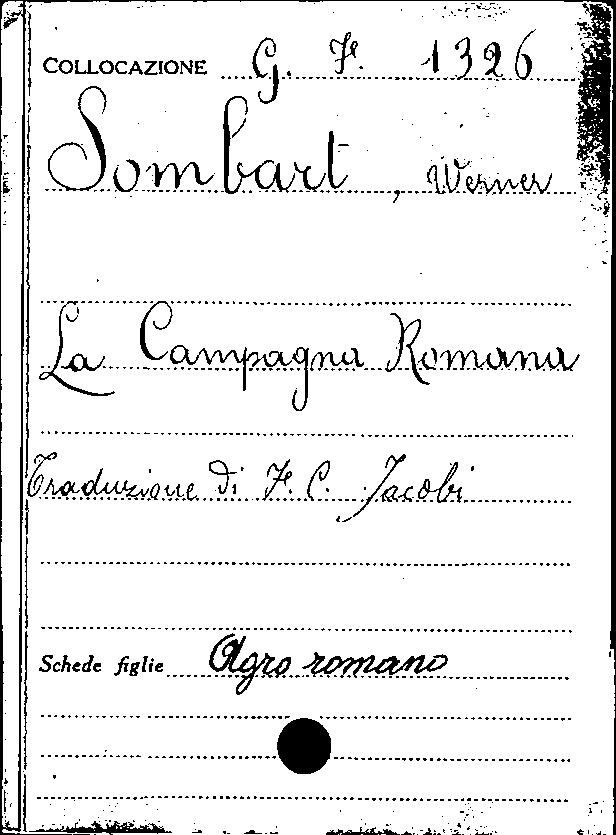 COLLOCAZIONE G. F. 1326
Sombart, Werner
La Campagna Romana
Traduzione di F. C. Jacobi
Schede figlie Agro romano